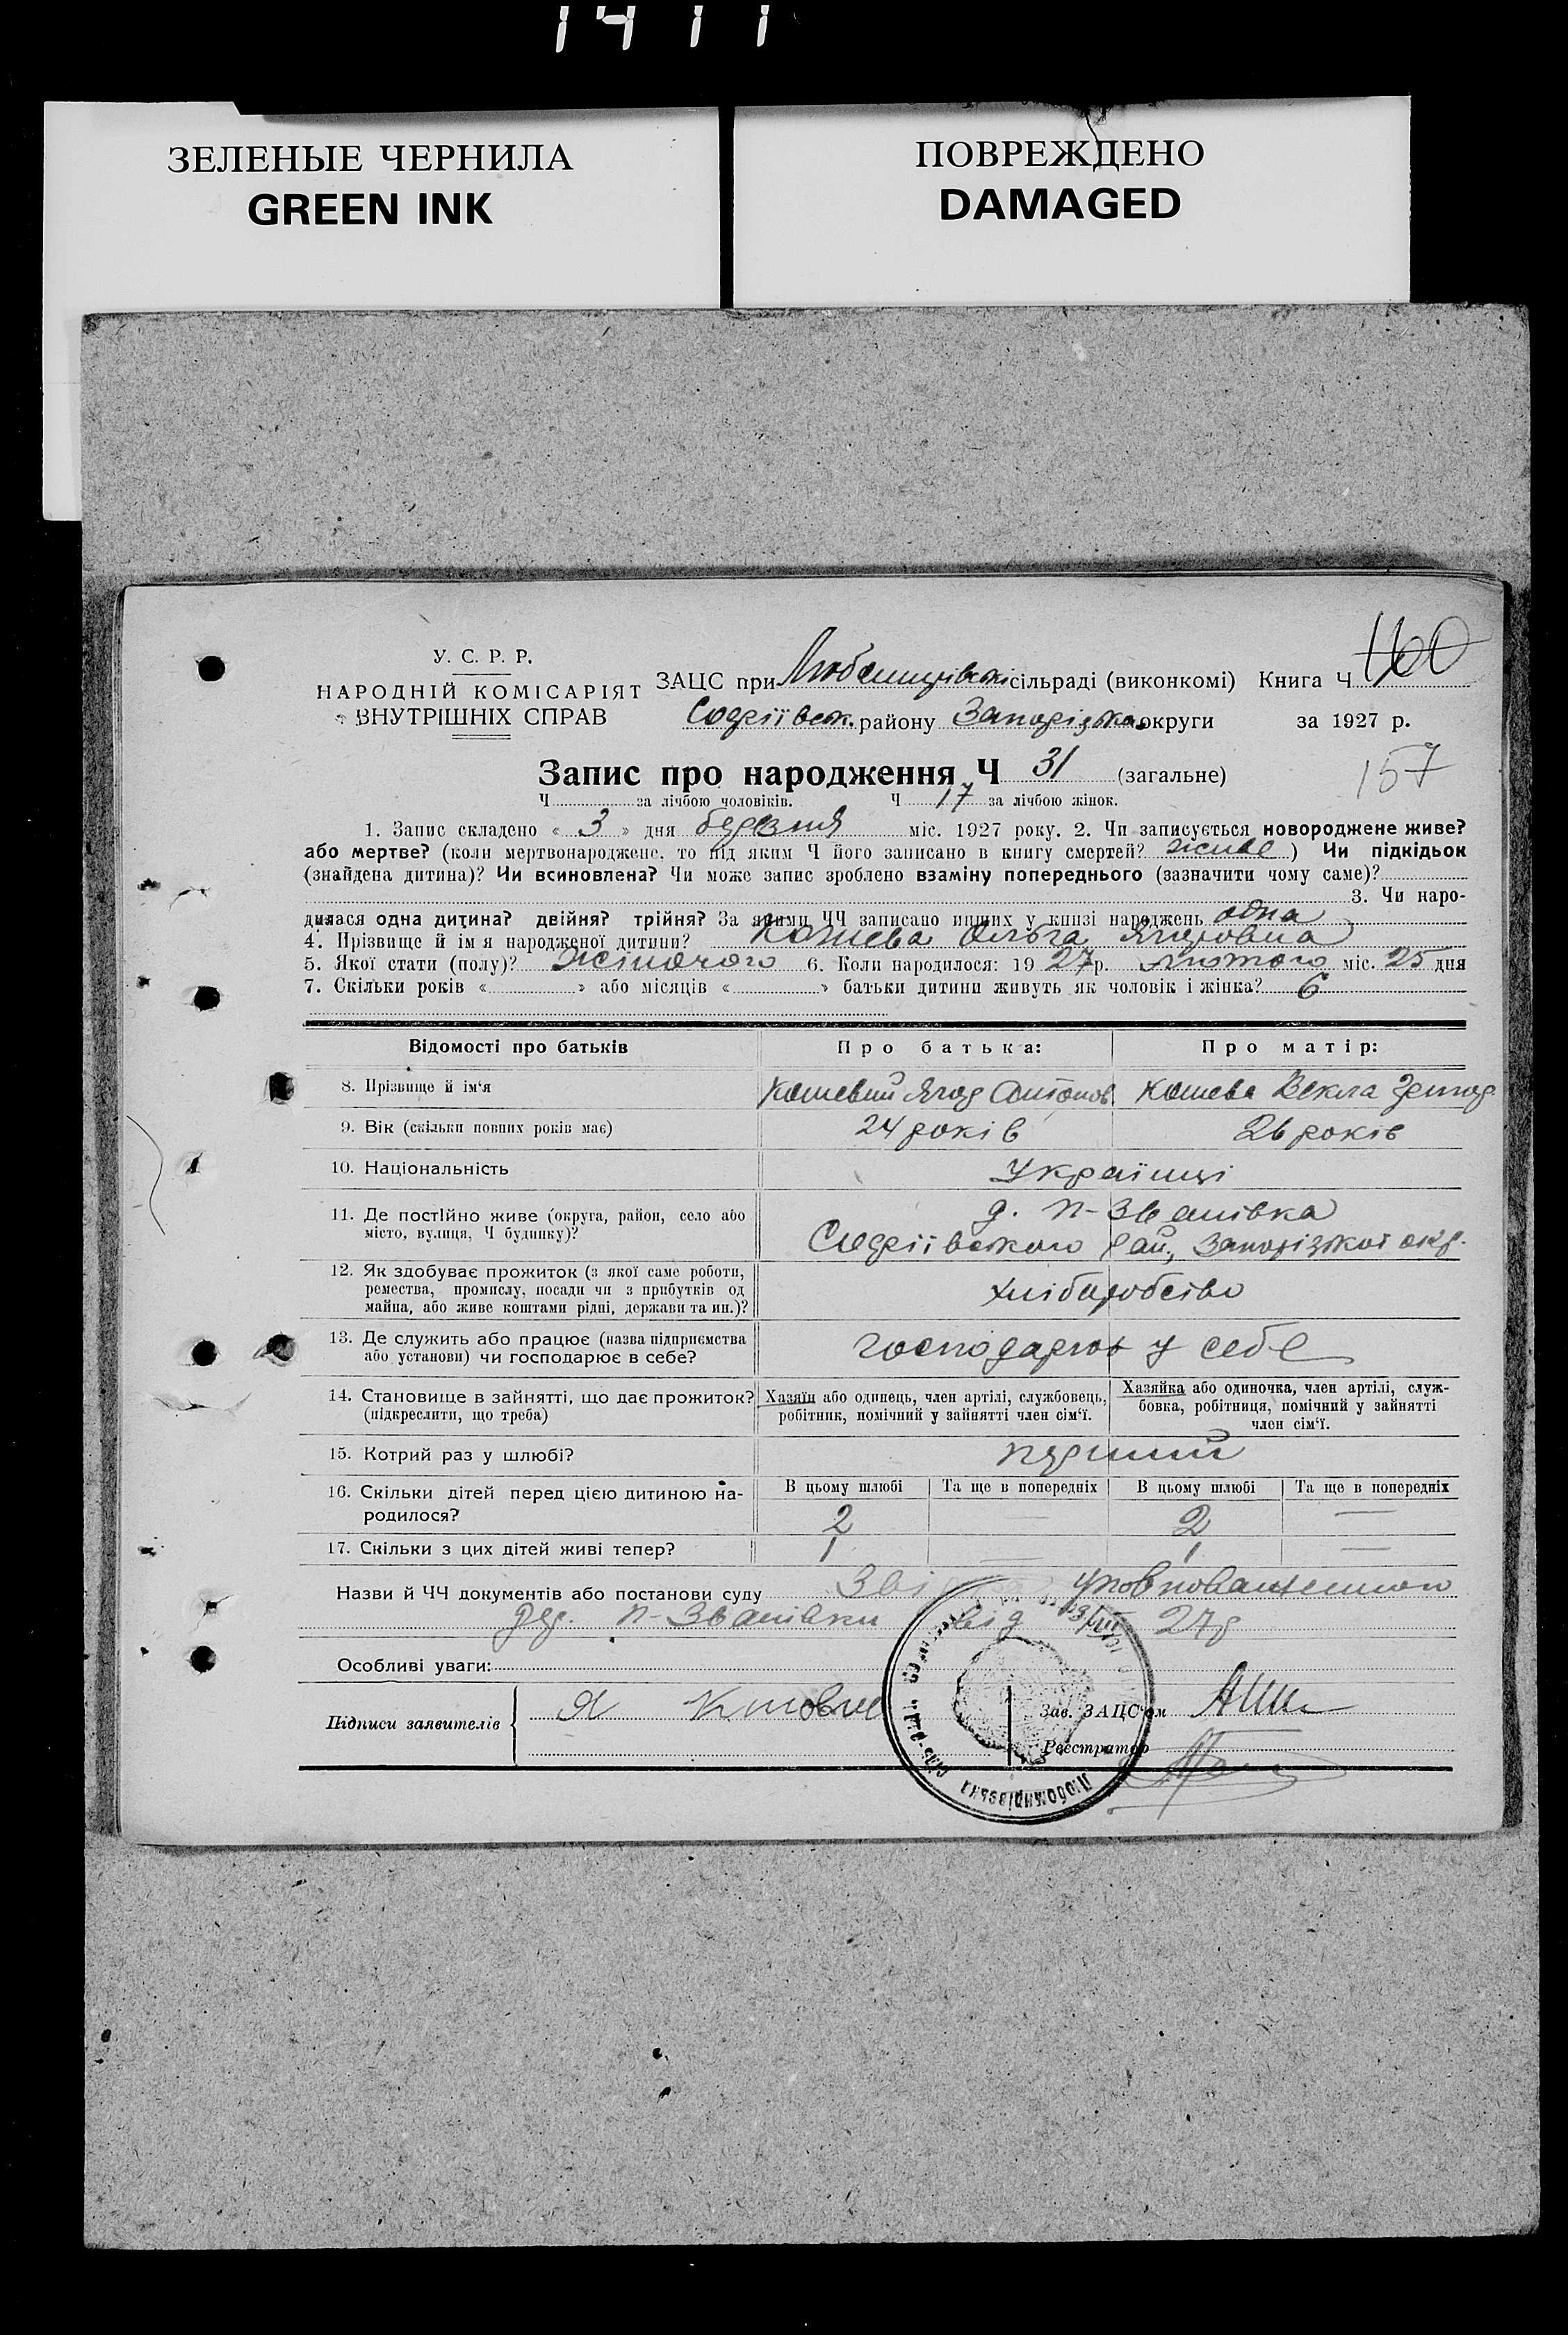 1411
ЗЕЛЕНЫЕ ЧЕРНИЛА
GREEN INK
ПОВРЕЖДЕНО
DAMAGED
У. С. Р. Р.
НАРОДНІЙ КОМІСАРІЯТ
ВНУТРІШНІХ СПРАВ
160
ЗАЦС при сільраді (виконкомі) Книга Ч
району округи за 1927 р.
157
Запис про народження Ч 31 (загальне)
Ч за лічбою чоловіків. Ч 17 за лічбою жінок.
1. Запис складено « 3 » дня березня міс. 1927 року. 2. Чи записується новороджене живе?
або мертве? (коли мертвонароджене, то під яким Ч його записано в книгу смертей? живе ) Чи підкідьок
(знайдена дитина)? Чи всиновлена? Чи може запис зроблено взаміну попереднього (зазначити чому саме)?
3. Чи наро-
дилася одна дитина? двійня? трійня? За якими ЧЧ записано инших у книзі народжень одна
4. Прізвище й ім я народженої дитини? Кошева Ольга Ягоровна
5. Якої стати (полу)? Жіночого 6. Коли народилося: 19 27 р. Лютого міс. 25 дня
7. Скільки років « » або місяців « » батьки дитини живуть як чоловік і жінка? 6
Відомості про батьків Про батька: Про матір:
8. Прізвище й ім'я Кошевий Ягор Антонов Кошева Векла
9. Вік (скільки повних років має) 24 років 26 років
10. Національність Українці
11. Де постійно живе (округа, район, село або
місто, вулиця, Ч будинку)?
д. П-Званівка
рай, Запорізької окр.
12. Як здобуває прожиток (з якої саме роботи,
ремества, промислу, посади чи з прибутків од
майна, або живе коштами рідні, держави та ин.)?
хліборобство
13. Де служить або працює (назва підприємства
або установи) чи господарює в себе?
господарюв у себе
14. Становище в зайнятті, що дає прожиток?
(підкреслити, що треба)
Хазяїн або одинець, член артілі, службовець,
робітник, помічний у зайнятті член сім'ї.
Хазяйка або одиночка, член артілі, служ-
бовка, робітниця, помічний у зайнятті
член сім'ї.
15. Котрий раз у шлюбі? перший
16. Скільки дітей перед цією дитиною на-
родилося?
В цьому шлюбі Та ще в попередніх В цьому шлюбі Та ще в попередніх
2 — 2 —
17. Скільки з цих дітей живі тепер? 1 — 1 —
Назви й ЧЧ документів або постанови суду уповноваженого
дер. П-Званівки від 3/III 27р
Особливі уваги:
Підписи заявителів Я
Зав. ЗАЦС'ом
Реєстратор